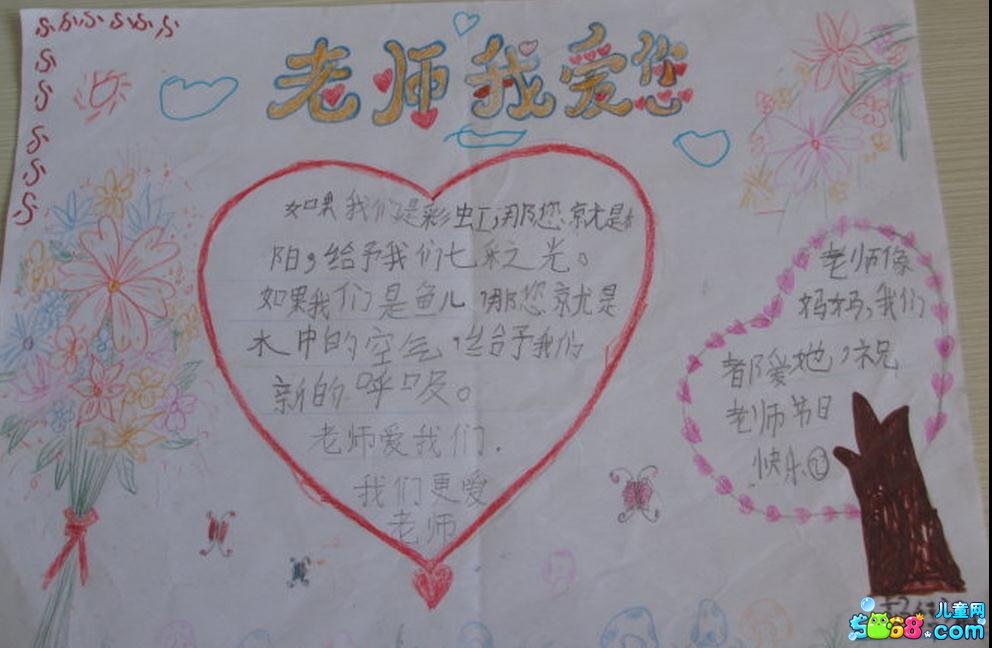 老师我爱您
如果我们是彩虹，那您就是太
阳，给予我们七彩之光。
如果我们是鱼儿，那您就是
水中的空气，给予我们
新的呼吸。
老师爱我们.
我们更爱
老师
老师像
妈妈，我们
都爱她，祝
老师节日
快乐
儿童网
5068.com